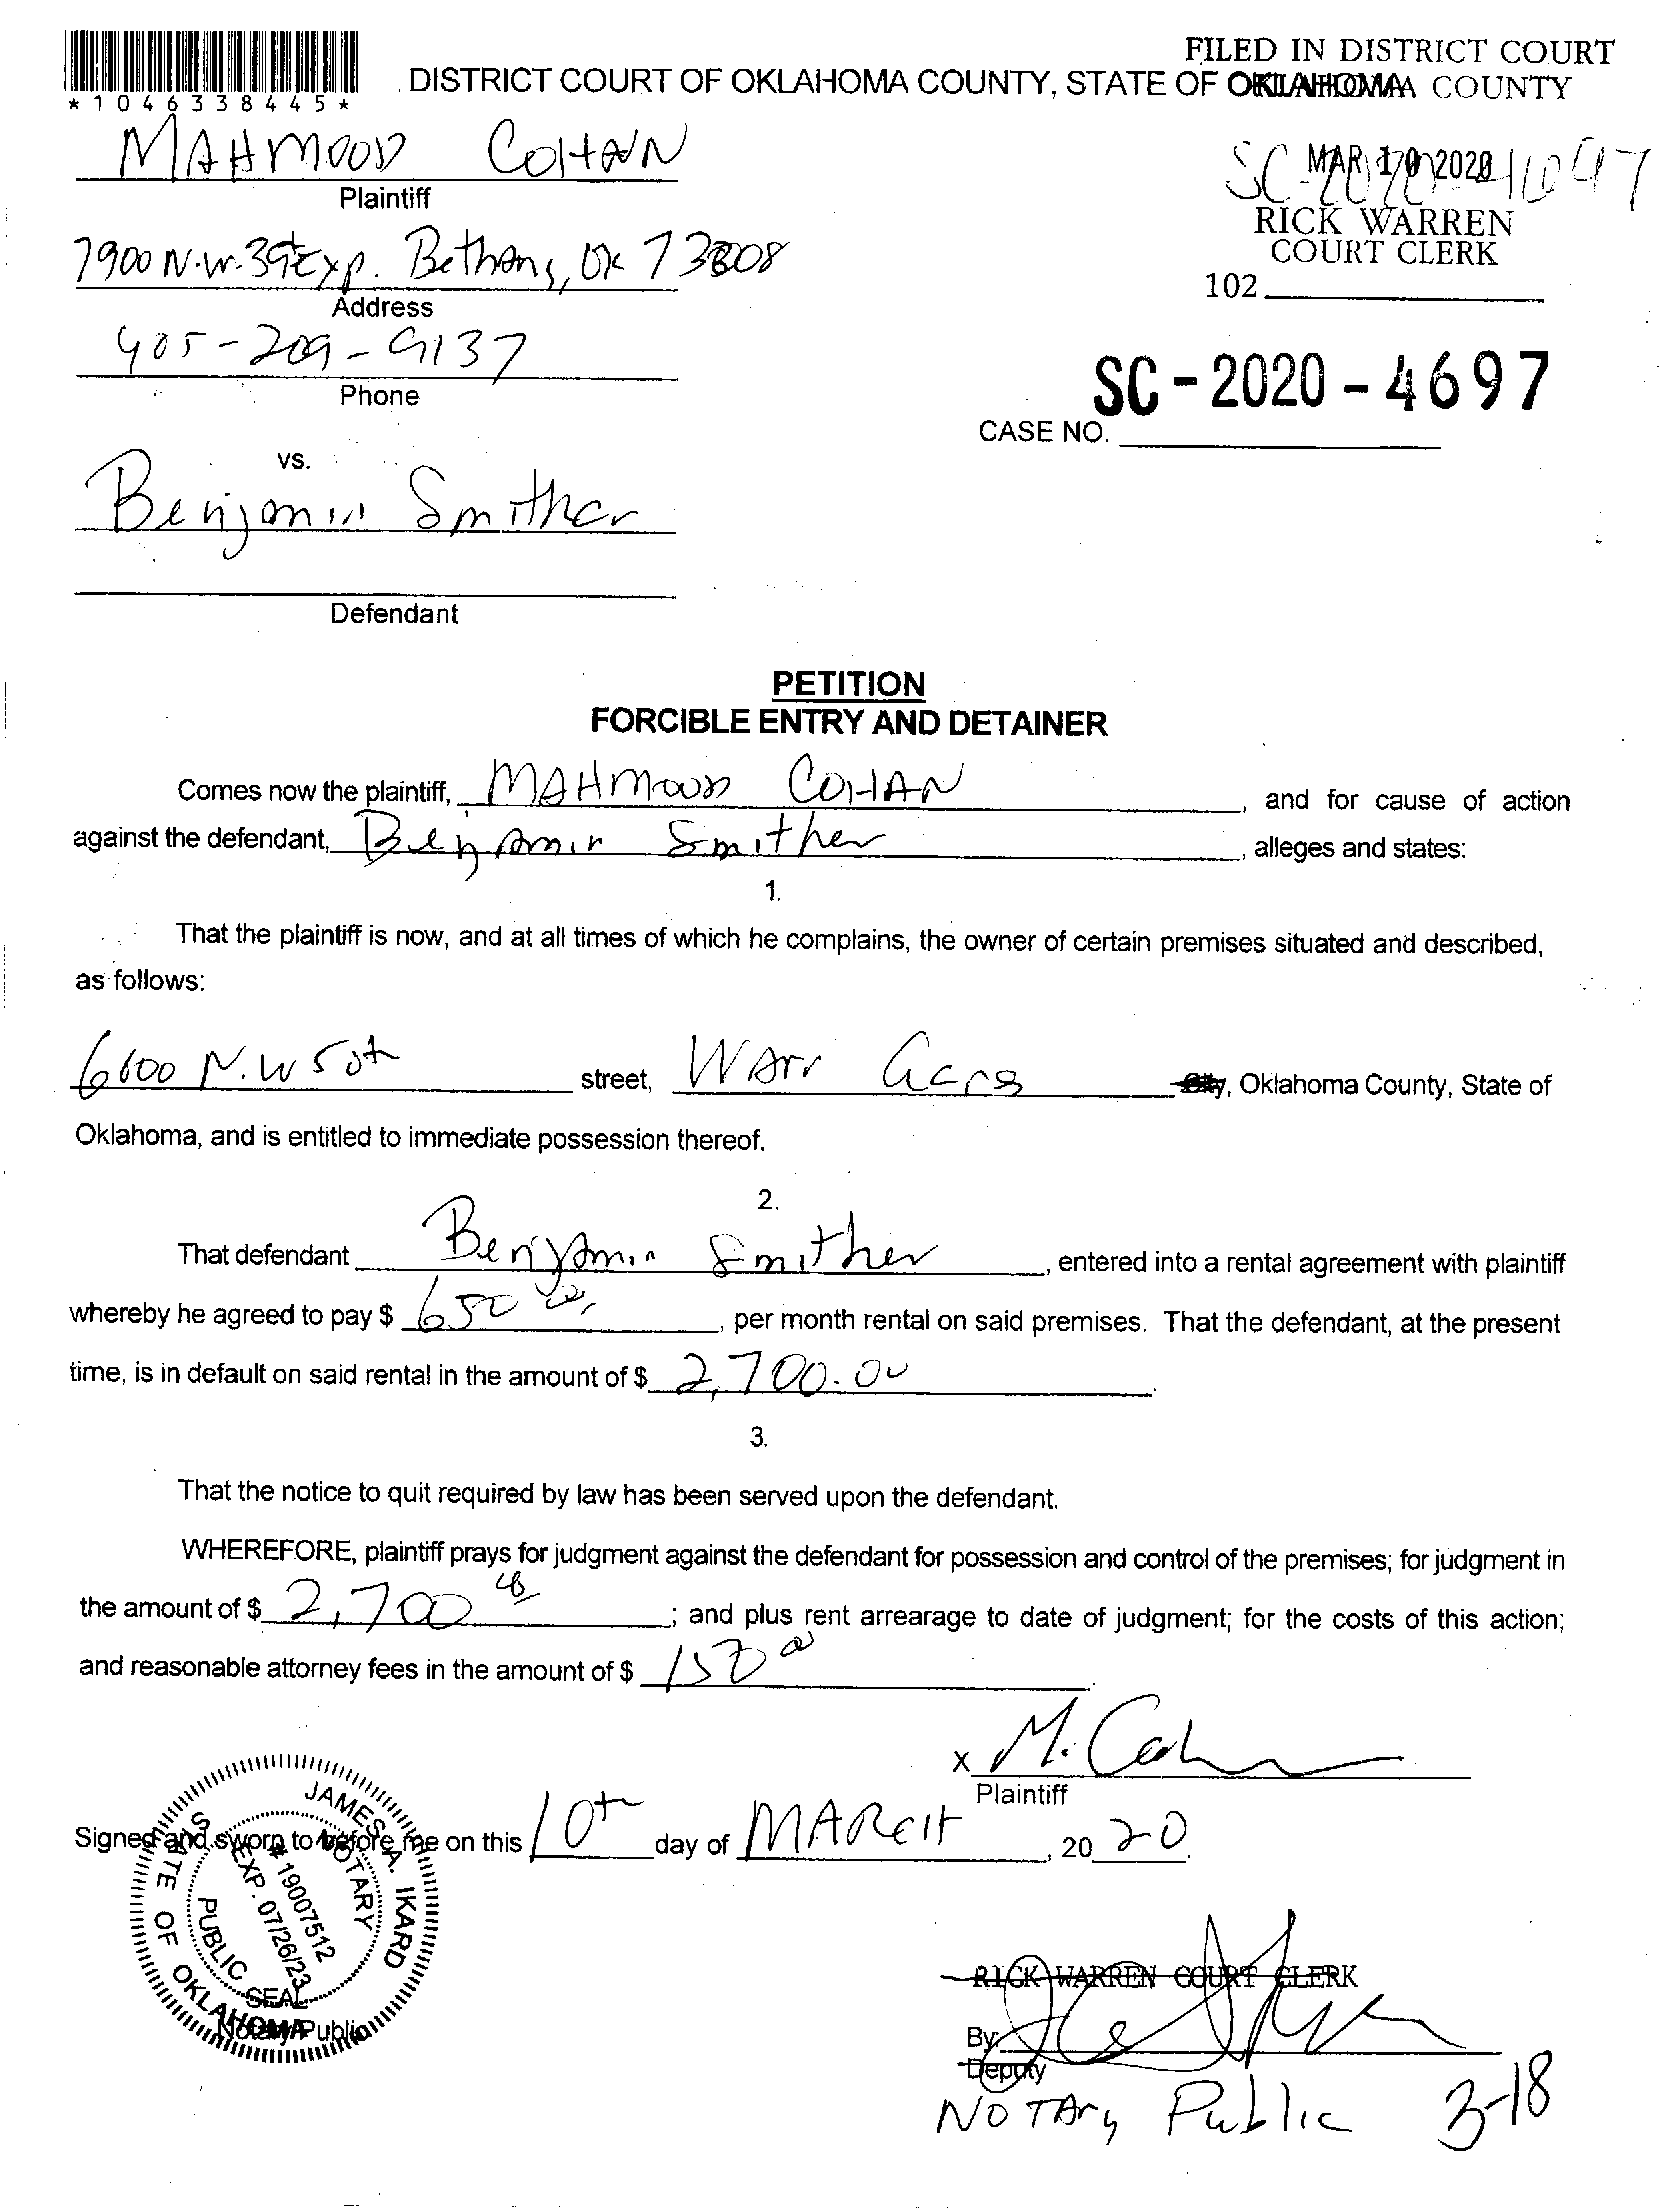 FILED IN DISTRICT COURT
DISTRICT COURT OF OKLAHOMA COUNTY, STATE OF OKLAHOMA
OKLAHOMA COUNTY
*1046338445*
MAHMOOD COHAN
Plaintiff
MAR 10 2020
SC-2020-
RICK WARREN
COURT CLERK
7900 N.W. 39th Exp. Bethany, OK 73008
Address
102
405-209-9137
Phone
SC-2020-4697
CASE NO.
vs.
Benjamin Smither
Defendant
PETITION
FORCIBLE ENTRY AND DETAINER
Comes now the plaintiff, MAHMOOD COHAN, and for cause of action
against the defendant, Benjamin Smither, alleges and states:
1.
That the plaintiff is now, and at all times of which he complains, the owner of certain premises situated and described,
as follows:
6600 N.W 50th street, Warr Acres City, Oklahoma County, State of
Oklahoma, and is entitled to immediate possession thereof.
2.
That defendant Benjamin Smither, entered into a rental agreement with plaintiff
whereby he agreed to pay $ 650 00, per month rental on said premises. That the defendant, at the present
time, is in default on said rental in the amount of $ 2,700.00.
3.
That the notice to quit required by law has been served upon the defendant.
WHEREFORE, plaintiff prays for judgment against the defendant for possession and control of the premises; for judgment in
the amount of $ 2,700 00; and plus rent arrearage to date of judgment; for the costs of this action;
and reasonable attorney fees in the amount of $ 150 00
x M. Cohan
Plaintiff
Signed and sworn to before me on this 10th day of MARCH, 20 20.
JAMES A. IKARD
NOTARY PUBLIC
STATE OF OKLAHOMA
# 19007512
EXP. 07/26/23
SEAL
Notary Public
RICK WARREN COURT CLERK
By:
Deputy
Notary Public 3-18